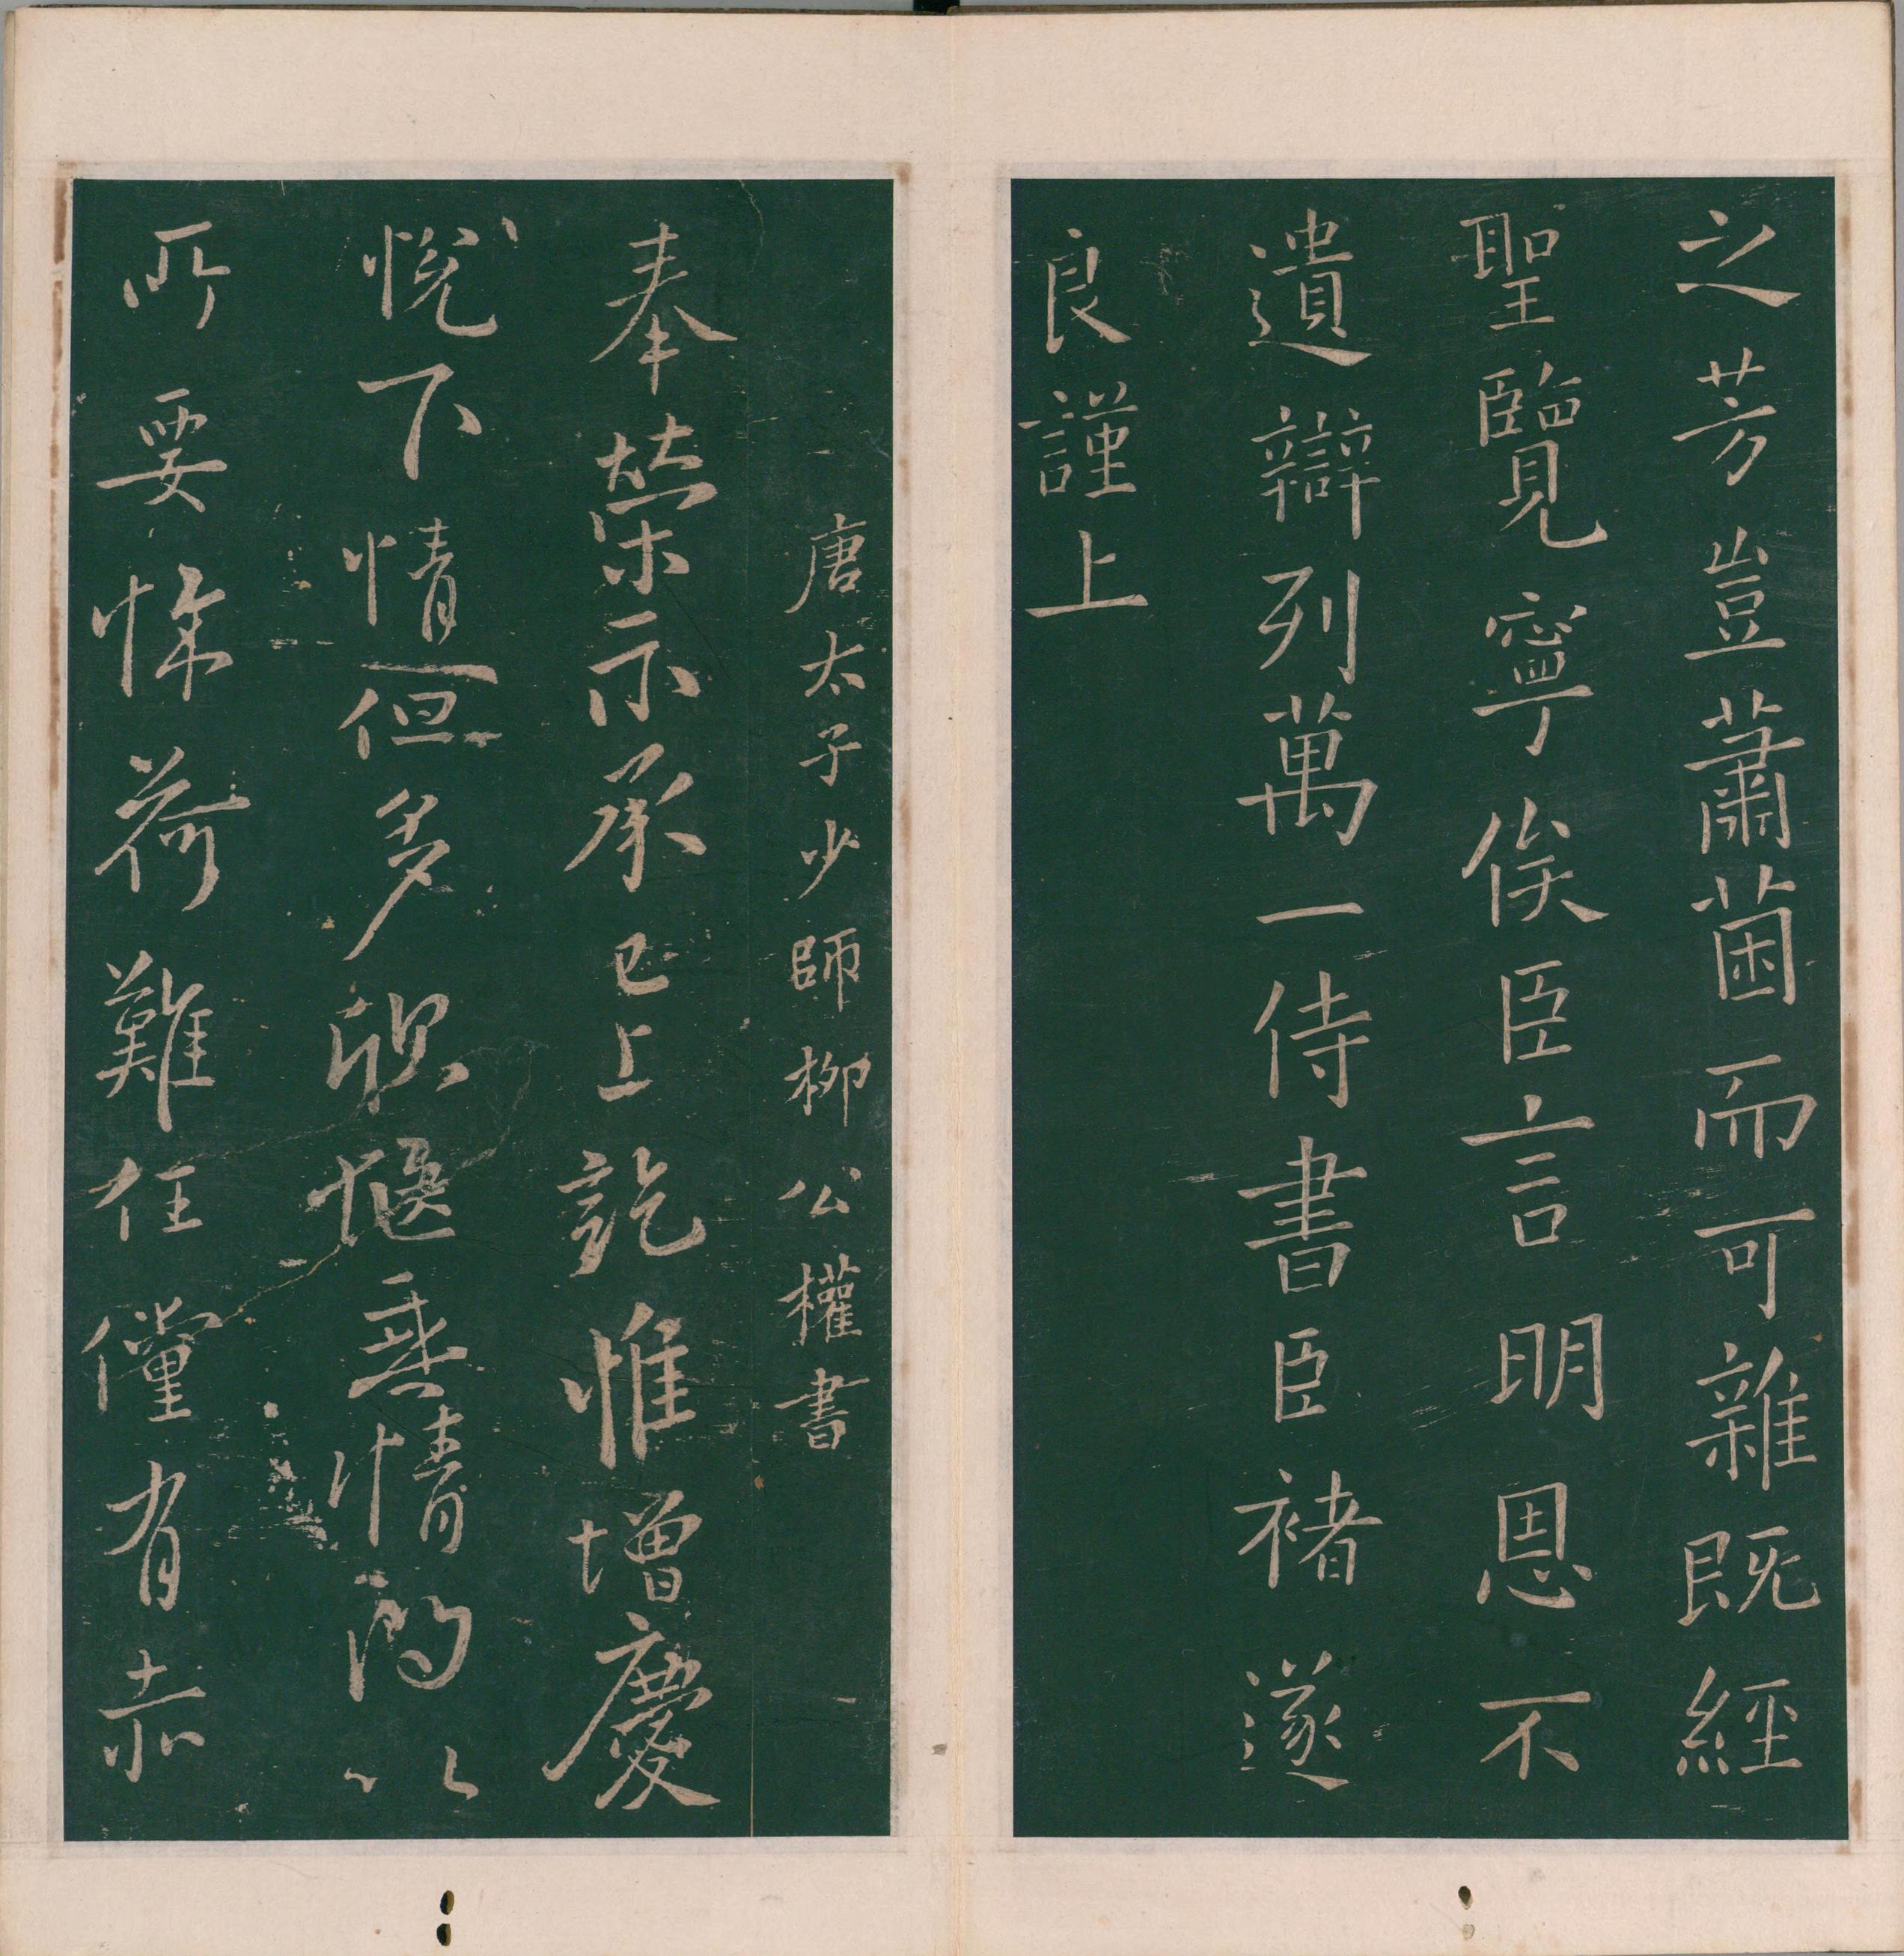 之芳豈蕭菌而可雜既經
聖覽寧俟臣言明恩不
遺辯列萬一侍書臣褚遂
良謹上
唐太子少師柳公權書
奉榮示承已上訖惟增慶
悅下情但多欣愜垂情問以
所要悚荷難任儻有赤